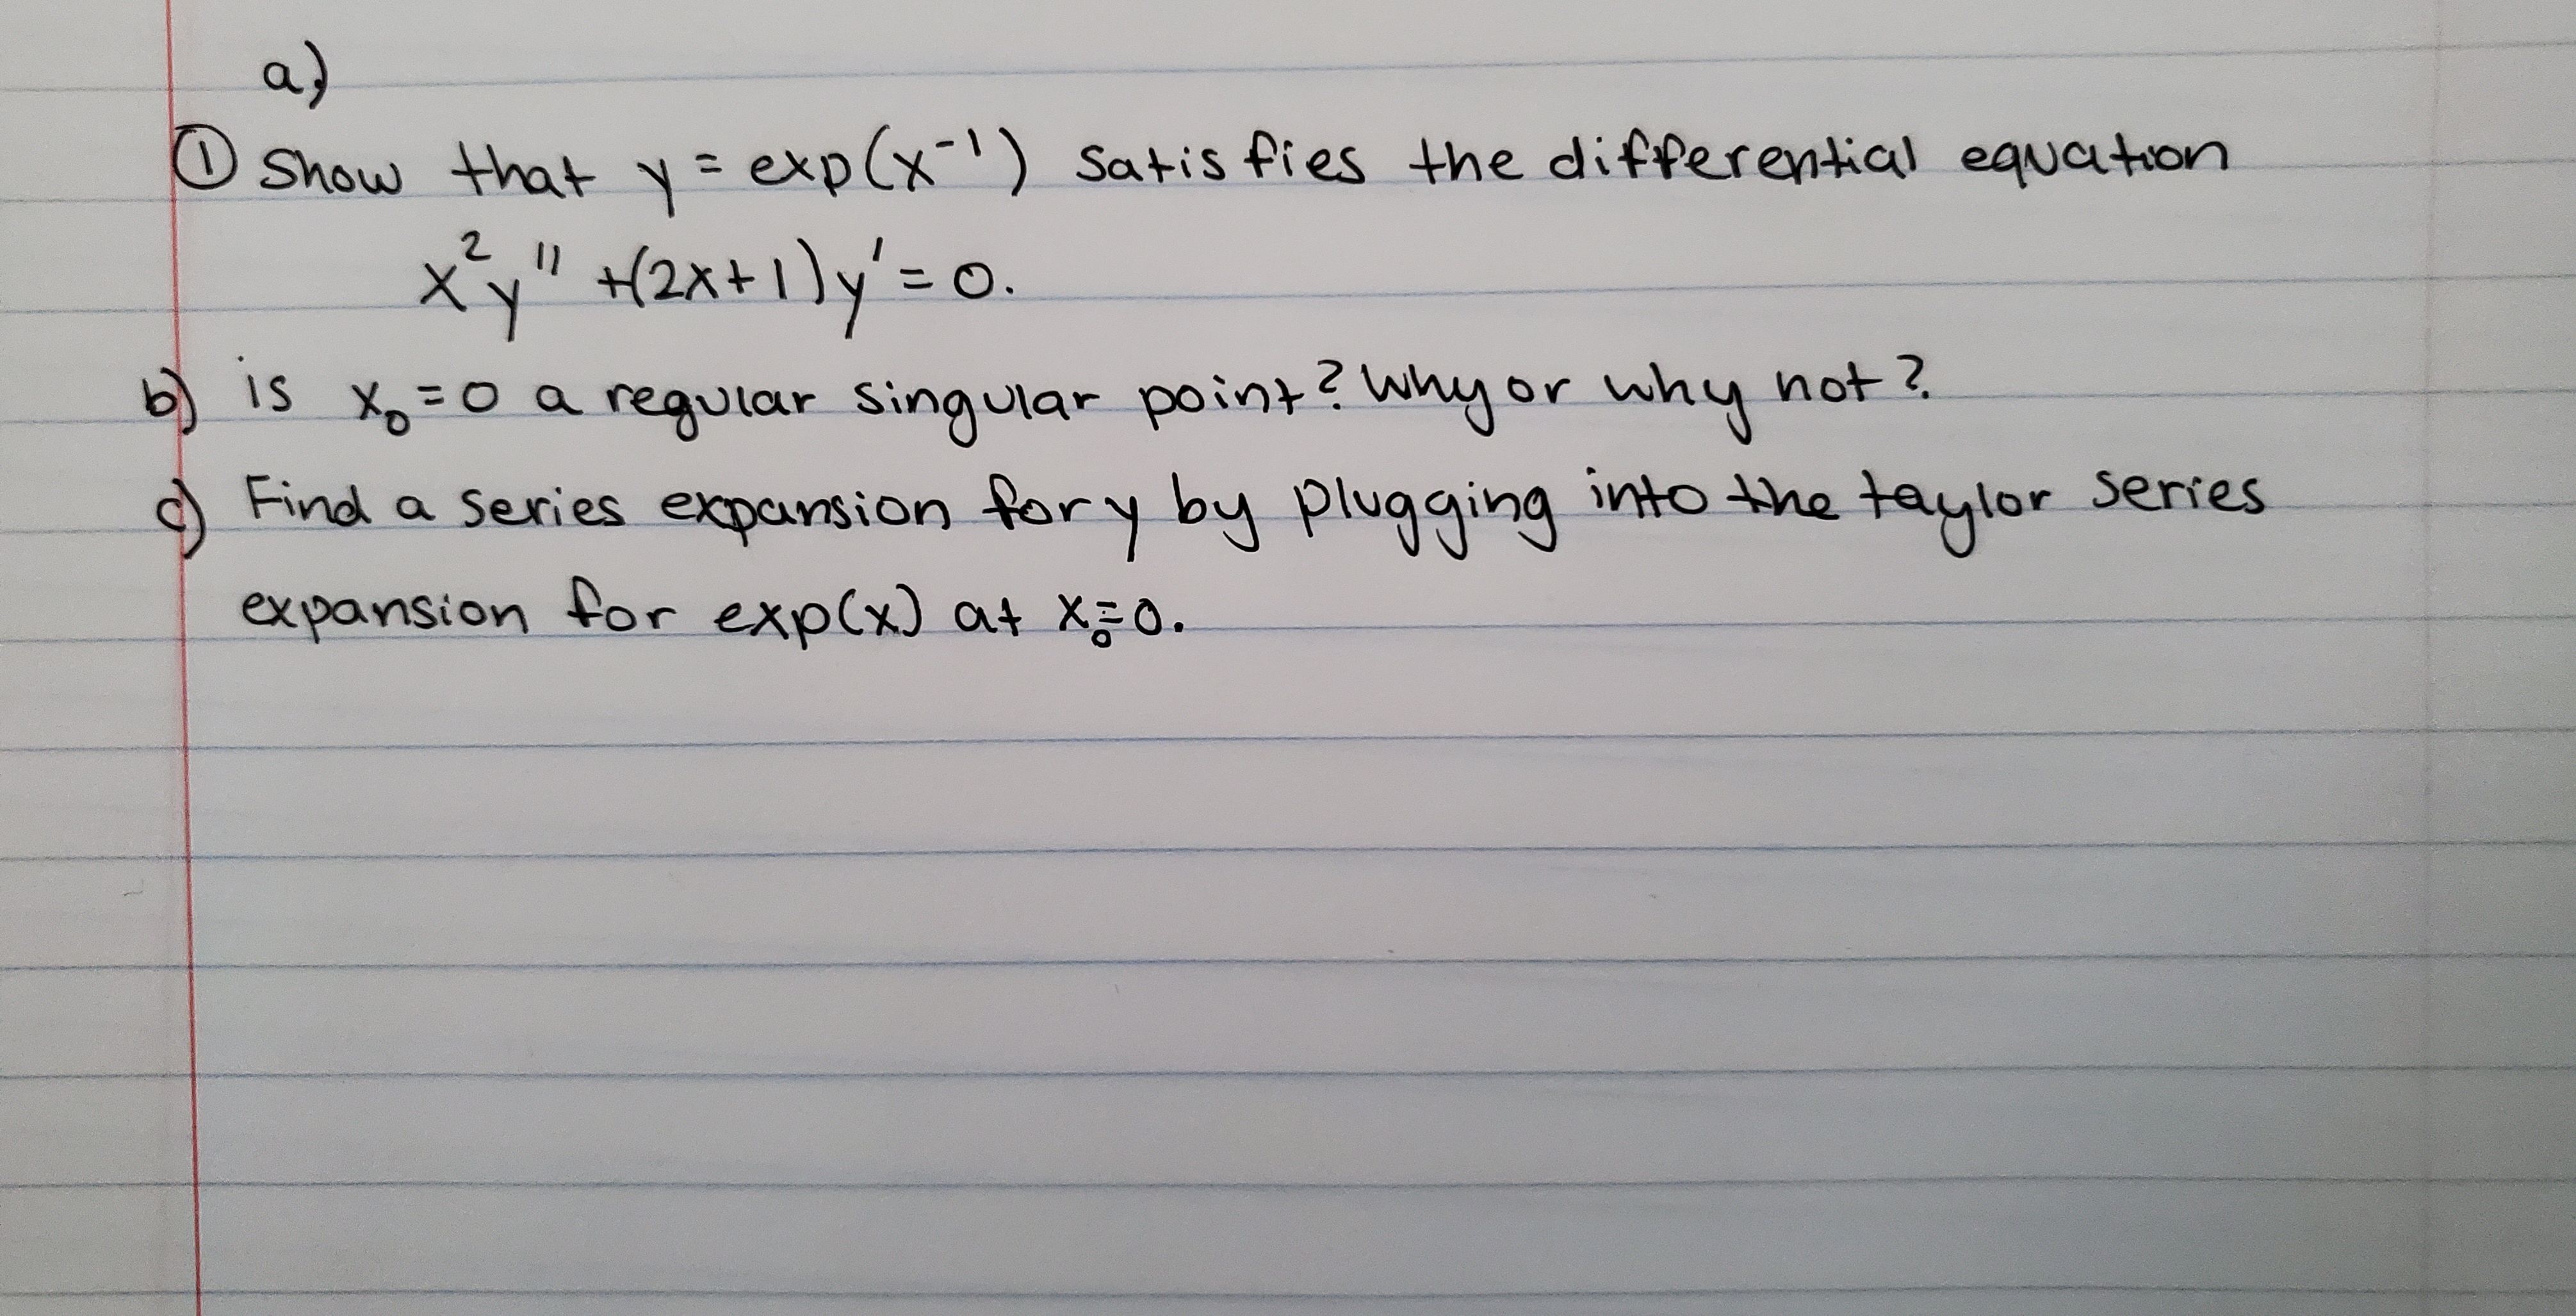 a)
① Show that y = exp(x⁻¹) satisfies the differential equation
x²y'' +(2x+1)y' = 0.
b) is x₀ = 0 a regular singular point? Why or why not?
c) Find a series expansion for y by plugging into the taylor series
expansion for exp(x) at x₀=0.